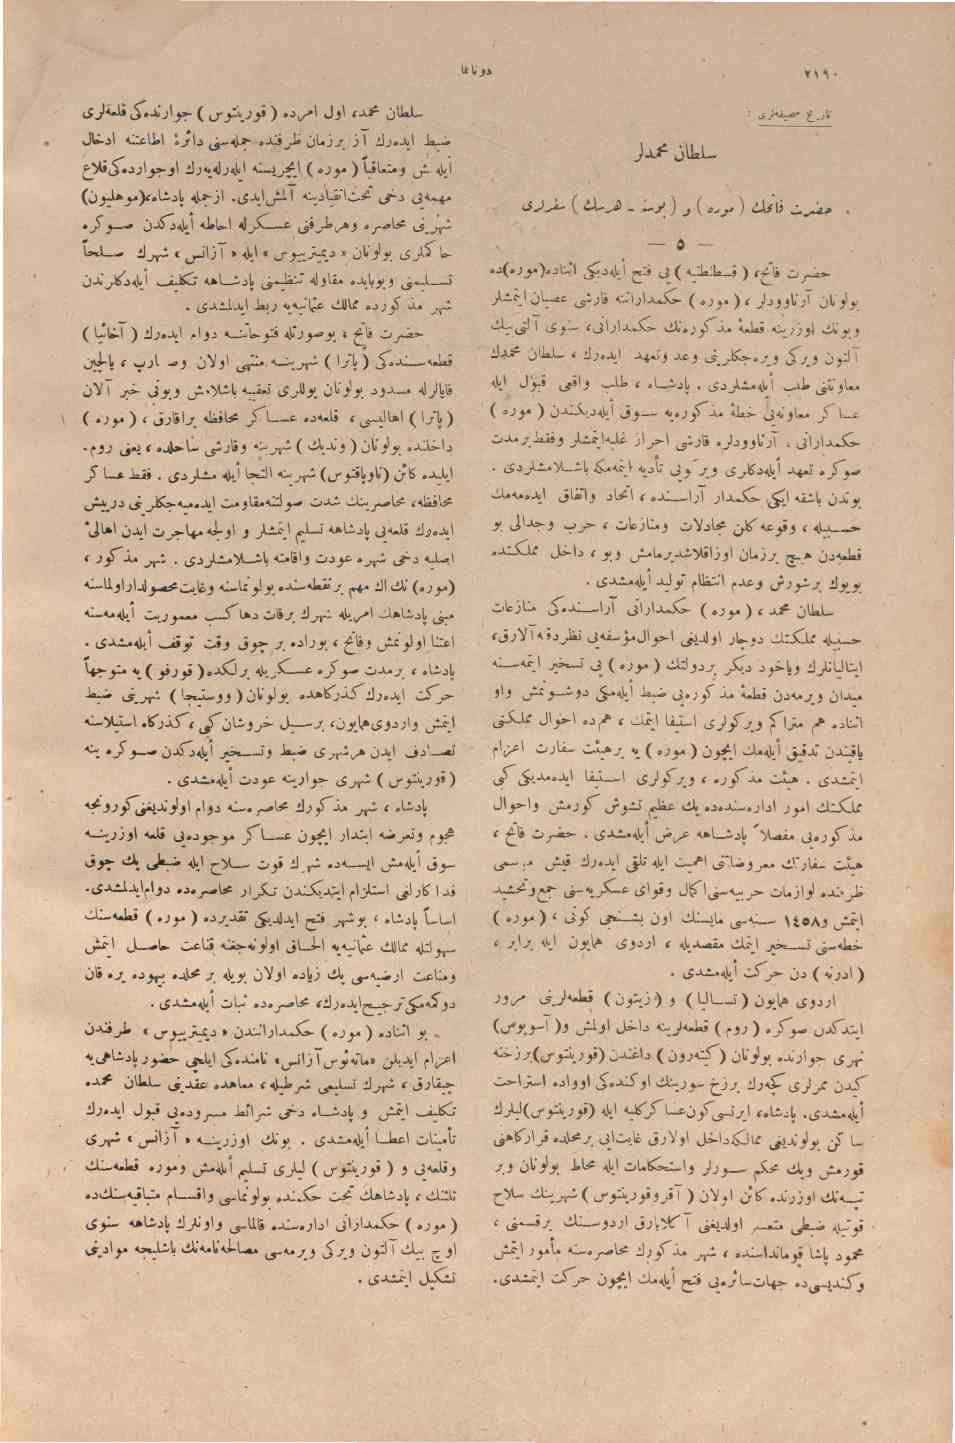 ٢١٩٠
دونانما
تاريخ صحيفه‌لرى :
سلطان محمدلر
حضرت فاتحك ( موره ) و ( بوسنه ـ هرسك ) سفرلرى
— ٥ —
حضرت فاتح، ( قسطنطنيه ) يى فتح أيله‌ديكى اثناده(موره)ده
بولونان آرناوودلر ، (موره ) حكمدارانته قارشى عصيان ايتمشلر
وبونك اوزرينه قطعهٔ مذكوره‌نك حكمدارانى، سنوى آلتى‌بيك
آلتون ويركى ويره‌جكلرينى وعد وتعهد ايده‌رك ، سلطان محمدك
معاونتنى طلب أيله‌مشلردى . پادشاه ، طلب واقعى قبول ايله
عساكر معاونه‌يى خطهٔ مذكوره‌يه سوق أيله‌ديكندن ( موره )
حكمدارانى ، آرناوودلره قارشى احراز غلبه‌ايتمشلر وفقط‌برمدت
صوكره تعهد أيله‌دكلرى ويركويى تأديه ايتمه‌مكه باشلامشلردى .
بوندن باشقه ايكى حكمدار آراسنده ، اتحاد واتفاق ايده‌مه‌مك
حسبيله ، وقوعه كلن مجادلات ومنازعات ، حرب وجدالى بو
قطعه‌دن هيچ برزمان اوزاقلاشديرمامش وبو ، داخل مملكتده
بويوك برشورش وعدم انتظام توليد أيله‌مشدى .
سلطان محمد ، ( موره ) حكمدارانى آراسنده‌كى منازعات
حسبيله مملكتك دوچار اولديغى احوال‌مؤسفه‌يى نظردقته‌آلارق،
ايتاليانلرك وياخود ديكر بردولتك (موره ) يى تسخير ايتمه‌سنه
ميدان ويرمه‌دن قطعهٔ مذكوره‌يى ضبط أيله‌مكى دوشونمش واو
اثناده هم متراكم ويركولرى استيفا ايتمك ، هم‌ده احوال مملكتى
ياقيندن تدقيق أيله‌مك ايچون (موره ) يه برهيئت سفارت اعزام
ايتمشدى . هيئت مذكوره ، ويركولرى استيفا ايده‌مديكى كبى
مملكتك امور اداره‌سنده‌ده پك عظيم تشوش كورمش واحوال
مذكوره‌يى مفصلاً پادشاهه عرض أيله‌مشدى . حضرت فاتح ،
هيئت سفارتك معروضاتنى اهميت ايله تلقى ايده‌رك قيش موسمى
ظرفنده لوازمات حربيه‌سنى‌اكمال وقواى عسكريه‌سنى جمع‌وتحشيد
ايتمش و١٤٥٨ سنه‌سى مايسنك اون بشنجى كونى ، (موره )
خطه‌سنى تسخير ايتمك مقصديله ، اردوى همايون ايله برابر ،
( ادرنه ) دن حركت أيله‌مشدى .
اردوى همايون ( تساليا ) و (زيتون ) قطعه‌لرينى مرور
ايتدكدن صوكره ( روم ) قطعه‌لرينه داخل اولمش و( آسوپوس)
نهرى جوارنده بولونان (كيته‌رون ) داغندن (قورينتوس)برزخنه
كيدن ممرلرى كچه‌رك برزخ سورينك اوكنده‌كى اوواده استراحت
أيله‌مشدى. پادشاه، ايرتسى‌كون‌عساكركليه ايله (قورينتوس)ليلرك
ساكن بولونديغى ممالكه‌داخل اولارق غايت‌ايى برمحلده قراركاهنى
قورمش وپك محكم سورلر واستحكامات ايله محاط بولونان وبر
تپه‌نك اوزرنده كائن اولان ( آقروقورينتوس ) شهرينك سلاح
قوتيله ضبطى متعسر اولديغنى آكلايارق اردوسنك برقسمنى ،
محمود پاشا قومانداسنده ، شهر مذكورك محاصره‌سنه مأمور ايتمش
وكنديسى‌ده جهات‌سائره‌يى فتح أيله‌مك ايچون حركت ايتمشدى.
سلطان محمد، اول امرده ( قورينتوس ) جوارنده‌كى قلعه‌لرى
ضبط ايده‌رك آز برزمان ظرفنده جمله‌سنى دائرهٔ اطاعتنه ادخال
أيله‌مش ومتعاقباً ( موره ) ايچريسنه ايلرله‌يه‌رك اوجوارده‌كى‌قلاع
مهمه‌يى دخى تحت‌انقيادينه آلمش‌ايدى. ازجمله پادشاه،(موهليون)
شهرينى محاصره وهرطرفنى عسكرله احاطه أيله‌دكدن صوكره
حاكملرى بولونان « ديميتريوس » ايله « آزانس » شهرك صلحاً
تسليمنى وبوبابده مقاوله تنظيمنى پادشاهه تكليف أيله‌دكلرندن
شهر مذكورده ممالك عثمانيه‌يه ربط ايدلمشدى .
حضرت فاتح ، بوصورتله فتوحاتنه دوام ايده‌رك ( آخائيا )
قطعه‌سنده‌كى ( پاترا ) شهرينه منتهى اولان وصارپ ، يالچين
قايالرله مسدود بولونان يوللرى تعقيبه باشلامش وبونى خبر آلان
( پاترا ) اهاليسى ، قلعه‌ده عساكر محافظه براقارق ، ( موره )
داخلنده بولونان ( ونديك ) شهرينه وقارشى ساحلده ، يعنى روم‌-
ايليده كائن (ناوپاقتوس) شهرينه التجا أيله‌مشلردى . فقط عساكر
محافظه، محاصرينك شدت صولتنه‌مقاومت ايده‌ميه‌جكلرينى درپيش
ايده‌رك قلعه‌يى پادشاهه تسليم ايتمشلر و اولجه مهاجرت ايدن اهالئ
اصليه دخى شهره عودت واقامته باشلامشلردى . شهر مذكور ،
(موره) نك‌اك مهم برنقطه‌سنده بولونماسنه وغايت‌محصولداراولماسنه
مبنى پادشاهك امريله شهرك برقات دهاكسب معموريت أيله‌مه‌سنه
اعتنا اولونمش وفاتح ، بوراده بر چوق وقت توقف أيله‌مشدى .
پادشاه ، برمدت صوكره عسكريله برلكده( قورفو ) يه متوجهاً
حركت ايده‌رك كذركاهده بولونان ( ووستيجا ) شهرينى ضبط
ايتمش واردوى‌همايون، برسيل خروشان‌كبى، كذركاه استيلاسنه
تصادف ايدن هرشهرى ضبط وتسخير أيله‌دكدن صوكره ينه
( قورينتوس ) شهرى جوارينه عودت أيله‌مشدى .
پادشاه ، شهر مذكورك محاصره‌سنه دوام اولونديغنى‌كورونجه
هجوم وتعرضه ابتدار ايچون عساكر موجوده‌يى قلعه اوزرينه
سوق أيله‌مش ايسه‌ده شهرك قوت سلاح ايله ضبطى پك چوق
فداكارلغى استلزام ايتديكندن تكرار محاصره‌ده دوام‌ايدلمشدى.
اساساً پادشاه ، بوشهر فتح ايدلديكى تقديرده (موره ) قطعه‌سنك
سهولتله ممالك عثمانيه‌يه الحاقى اولونه‌جغنه قناعت حاصل ايتمش
ومناعت ارضيه‌سى پك زياده اولان بويله بر محلده بيهوده يره قان
دوكمه‌مكى‌ترجيح‌ايده‌رك، محاصره‌ده ثبات أيله‌مشدى .
بو اثناده ( موره ) حكمدارانندن « ديميتريوس » طرفندن
اعزام ايديلن «ماته‌ئوس آزانس» نامنده‌كى ايلچى حضور پادشاهى‌يه
چيقارق ، شهرك تسليمى شرطيله ، معاهده عقدينى سلطان محمده
تكليف ايتمش و پادشاه دخى شرائط مسروده‌يى قبول ايده‌رك
تأمينات اعطا أيله‌مشدى . بونك اوزرينه « آزانس » شهرى
وقلعه‌يى و ( قورينتوس ) ليلرى تسليم أيله‌مش وموره قطعه‌سنك
ثلثنك ، پادشاهك تحت حكمنده بولونماسى واقسام متباقيه‌سنك‌ده
( موره ) حكمدارانى اداره‌سنده قالماسى واونلرك پادشاهه سنوى
اوچ بيك آلتون ويركى ويرمه‌سى مصالحه‌نامه‌نك باشليجه موادينى
تشكيل ايتمشدى .